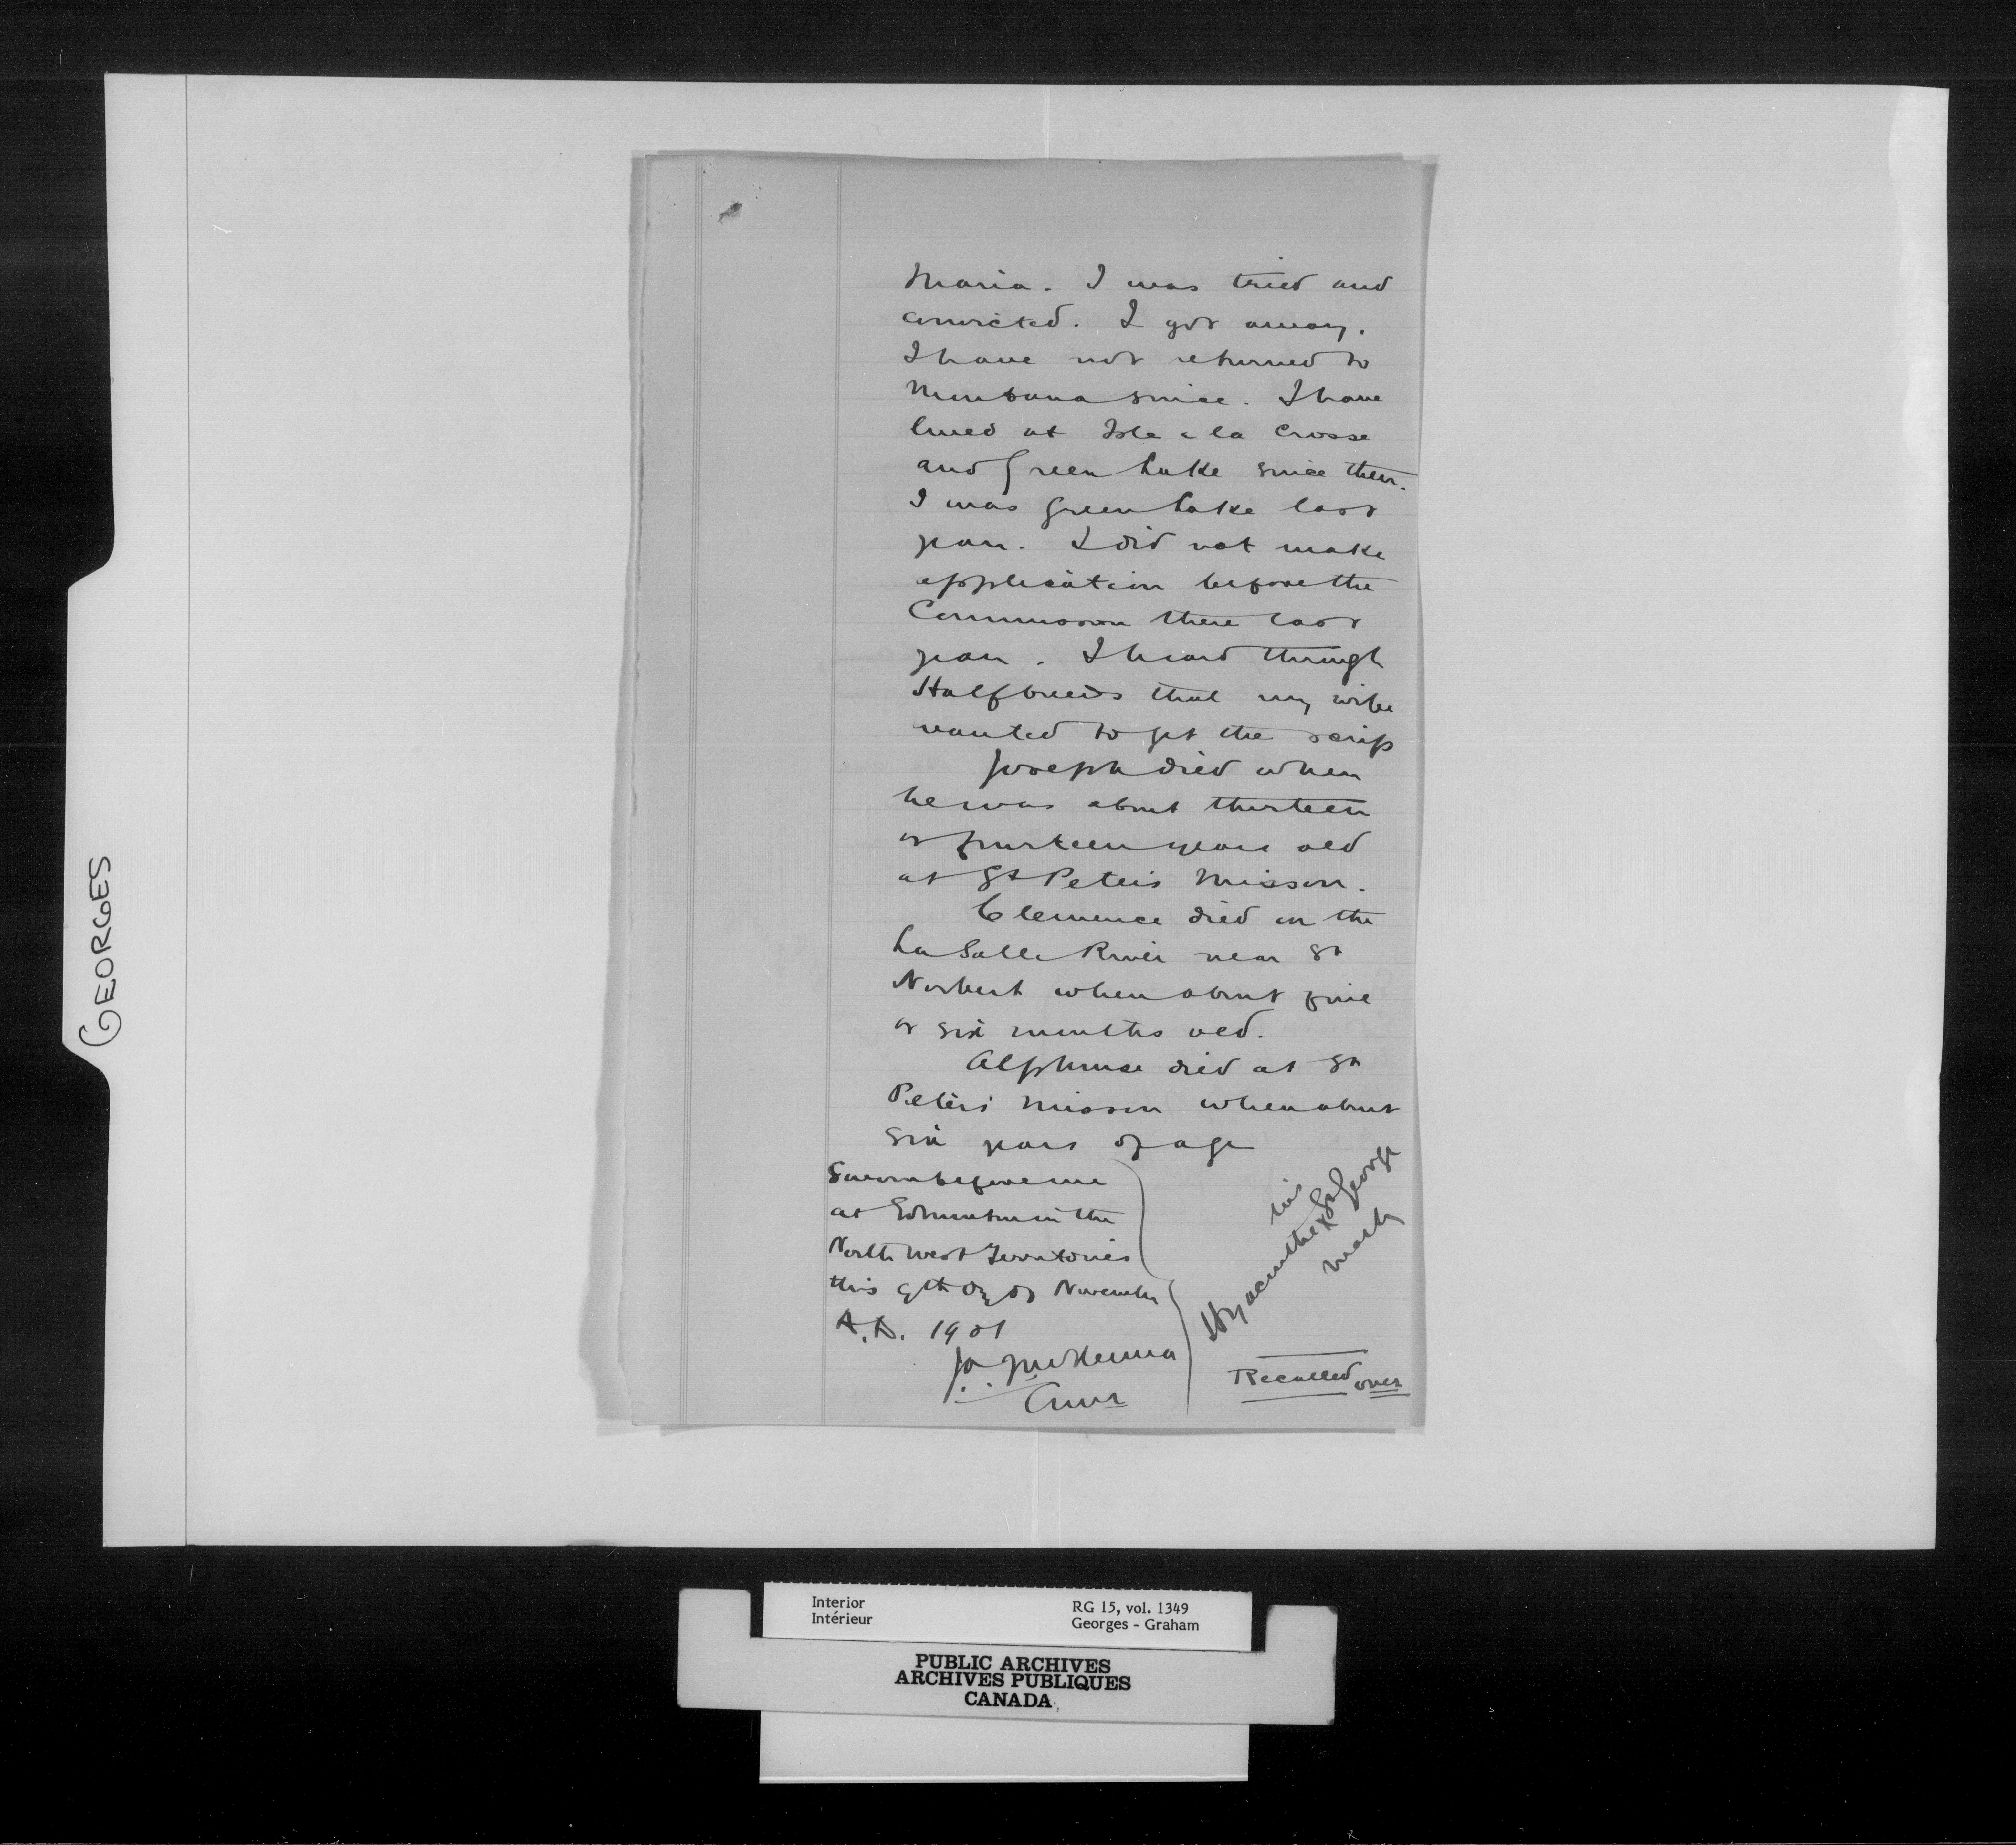 Maria. I was tried and
convicted. I got away.
I have not returned to
Montana since. I have
lived at Isle a la Crosse
and Green Lake since then.
I was Green Lake last
year. I did not make
application before the
Commission there last
year. I heard through
Halfbreeds that my wife
wanted to get the scrip
Joseph died when
he was about thirteen
or fourteen years old
at St Peter's Mission.
Clemence died on the
La Salle River near St
Norbert when about five
or six months old.
Alphonse died at St
Peters Mission when about
six years of age
Sworn before me
at Edmonton in the
North West Territories
this 9th day of November
A.D. 1901
J.A.J. McKenna
Comr
his
Hyacinthe X St George
mark
Recalled over
GEORGES
Interior
Intérieur
RG 15, vol. 1349
Georges - Graham
PUBLIC ARCHIVES
ARCHIVES PUBLIQUES
CANADA